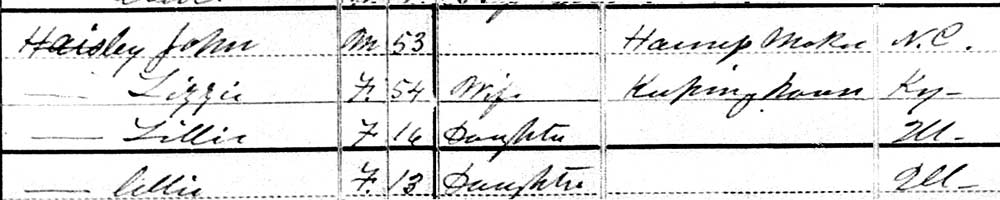 Haisley John M 53 Harness Maker N.C.
— Lizzie F. 54 Wife Keeping house Ky-
— Lillie F 16 Daughter Ill-
— Ollie F. 13 Daughter Ill-